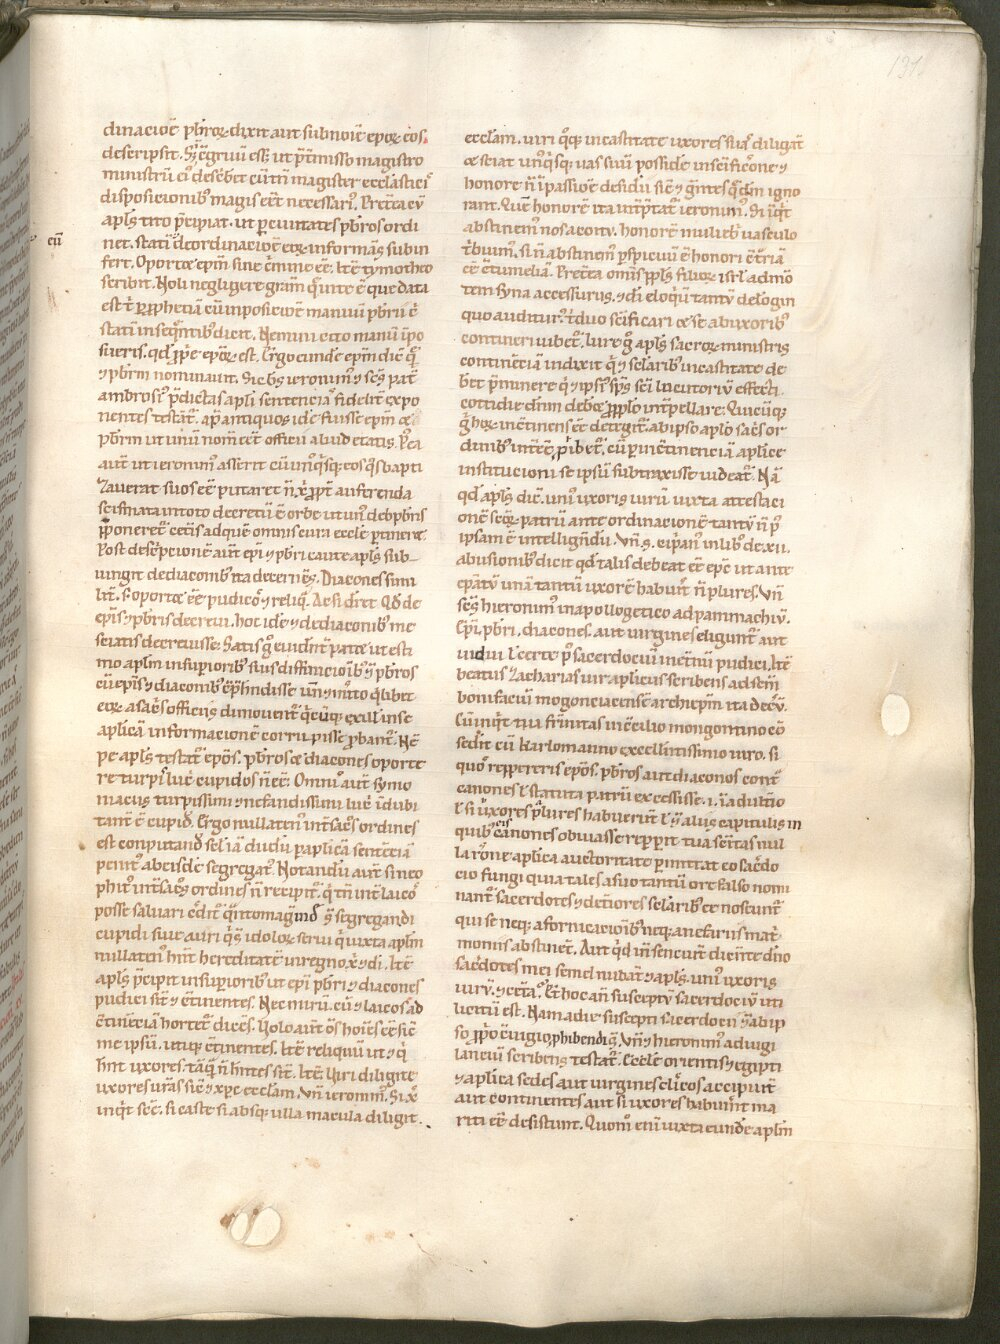 131
dinacioē p̄broꝝ dixit aut̄ sub noīe epoꝝ eos
descripsit. Sī c̄gruū eēt ut p̄t̄misso magistro
ministrū eī desc̄bēt cū tn̄ magister eccl̄astice
disposicionibꝰ magis eēt necessariꝰ. Pret̄ea eū
apl̄s tito p̄cipiat. ut per ciuitates p̄bros ordi
cū
net. statī de ordinacioē eoꝝ informās subin
fert. Oportet ep̄m sine c̄mine eē. Itē tymotheo
scribit. Noli negligere grām q̄ in te ē que data
est t̄ per p̄phetiā cū inposicioē manuū p̄brū
statī in seq̄ntibꝰ dicit. Nemini cito manū īpo
sueris. qd̄ p̄p̄e epoꝝ est. Ergo eundē ep̄m dic̄
⁊ p̄brm nominauit. Sic bs̄ ieronimꝰ ⁊ scs̄ pat̄
ambrosiꝰ p̄dictas apl̄i sentencias fidelit̄ expo
nentes testāt̄. ap̄ antiquos idē fuisse ep̄m ⁊
p̄brm ut unū nom̄ eēt officii aliud etatis. Postea
aut̄ ut ieronimꝰ asserit cū unꝰq̄sq̄ eos q̄s bapti
zauerat suos eē putaret n̄ xp̄i. ꝓpt̄ auferenda
scismata in toto decretū ē orbe ut unꝰ de p̄bris
p̄poneret̄ cet̄is ad quē omnis cura eccl̄e ptineret.
Post descͥpcionē aut̄ ep̄i ⁊ p̄bri caute apl̄s sub
iungit de diaconibꝰ ita decernēs. Diacones simi
lit̄. s. oportet eē pudicos ⁊ reliq̄. Ac si dic̄et. Qd̄ de
ep̄is ⁊ p̄bris decreui. hoc idē ⁊ de diaconibꝰ me
sciatis decreuisse. Satis gͦ euident̄ patet ut esti
mo apl̄m in supioribꝰ suis diffinicioībꝰ ⁊ p̄bros
cū ep̄is ⁊ diaconibꝰ cōp̄hendisse un̄ ⁊ m̄ito q̄libet
eoꝝ a sac̄s officiis dimouent̄ q̄cūq̄ ex illis se
aplicā informacionē corrupisse ꝓbant̄. Nē
pe apl̄s testat̄ ep̄os. p̄bros et diacones oporte
re turpis lucͥ cupidos n̄ eē. Omniū aut̄ symo
niacus turpissimi ⁊ nefandissimi lucͥ īdubi
tant̄ ē cupidꝰ. Ergo nullatenꝰ int̄ sac̄s ordines
est conputandꝰ sed iā dudū ꝑ aplicā sentēciā
penitꝰ abscisꝰ de segregat̄. Notandū aut̄ si neo
phitꝰ int̄ sac̄s ordines n̄ recipit̄. q̄ tn̄ int̄ laicos
posse saluari c̄dit̄ q̄nto magis inde s̄t segregandi
cupidi siue auri q̄s̄ idoloꝝ serui q̄ iuxta apl̄m
nullatenꝰ hn̄t hereditatē in regno xp̄i ⁊ di. Itē
apl̄s p̄cipit in supioribꝰ ut ep̄i p̄bri ⁊ diacones
pudici sint ⁊ c̄tinentes. Nec mirū. cū ⁊ laicos ad
c̄tinēciā hortet̄ dicēs. Volo aut̄ oēs hoīes eē sic̄
me ipsū. utiq̄ c̄tinentes. Itē reliquū ut ⁊ q̄
hn̄t uxores tāq̄ n̄ hn̄tes sint. Itē. Viri diligite
uxores ur̄as sic̄ ⁊ xp̄c eccl̄am. Vn̄ ieronimꝰ. Si xp̄c
inq̄t sc̄e. si caste si absq̄ ulla macula diligit.
eccl̄am. uiri q̄q̄ in castitate uxores suas diligāt
et sciat unꝰq̄sq̄ uas suū possidē in sc̄ificōne ⁊
honore n̄ ī passioē desiderii sic̄ ⁊ gentes q̄ dm̄ igno
rant. Quē honorē ita int̄ptat̄ ieronimꝰ. Si īq̄t
abstinemꝰ nos a coitu. honorē mulieb̄ uasculo
t̄buimꝰ. si n̄ abstinemꝰ p̄spicuū ē honori c̄t̄riā
eē c̄tumeliā. Pret̄ea omīs ppl̄s filioꝝ isrl̄ ad mō
tem syna accessurus. ⁊ dei eloq̄ū tantū de longin
quo auditurꝰ. t̄duo sc̄ificari et se ab uxoribꝰ
contineri iubet̄. Iure gͦ apl̄s sacroꝝ ministris
continēciā indixit q̄ ⁊ sclaribꝰ in castitate de
bēt p̄minere q̄ ⁊ ipsi sps̄ sc̄i locutoriū effecti
cottidie dnm̄ debēt ꝓ ppl̄o int̄pellare. Quicūq̄
gͦ hoꝝ inc̄tinens eē detegit̄. ab ipso apl̄o sac̄s or
dinibꝰ int̄ eē ꝓhibet̄. cū ꝑ inc̄tinenciā aplice
institucioni se ipsū subtraxisse uideat̄. Nā
qd̄ apl̄s dic̄. unꝰ uxoris uirū iuxta attestaci
onē sc̄oꝝ patrū ante ordinacionē tantū n̄ p̄
ipsam ē intelligendū. Vn̄ s. cipͥanꝰ in libꝰ de xii.
abusionibꝰ dicit qd̄ talis debeat eē epc̄ ut ante
epatū unā tantū uxorē habuīt n̄ plures. Vn̄
scs̄ hieronimꝰ in apollogetico ad pammachiū.
Ep̄i. p̄bri. diacones. aut uirgines eligunt̄ aut
uidui. l' certe p̄ sacerdociū inet̄nū pudici. Itē
beatus zacharias uir aplicus scribens ad sc̄m
bonifaciū mogonciacensē archiep̄m. ita dec̄u.
Cū inq̄t tua fr̄nitas in c̄cilio mongontino eō
sedit cū Karlomanno excellentissimo uiro. si
quos repperetis ep̄os. p̄bros aut diaconos cont̄
canones l' statuta patrū excessisse. i. ī adult̄io
l' si uxores plures habuerūt l' ī aliis capitulis in
quibꝰ eis canones obuiasse repperit tua sc̄itas nul
la rōne aplica auctoritate pmittat eos ac̄do
cio fungi quia tales a suo tantū ore falso nomi
nant̄ sacerdotes ⁊ det̄iores sclaribꝰ ee noscunt̄
qui se neq̄ a fornicacioībꝰ neq̄ a nefariis mat̄
moniis abstinēt. Aut q̄d n̄ sencerūt dicente dn̄o
sac̄dotes mei semel nubāt ⁊ apl̄s. unꝰ uxoris
uirū. ⁊ cet̄a. Et hoc an̄ susceptū sacerdociū uti
licitū est. Nam a die suscepti sacerdocii ⁊ ab ip
so ꝓpͦ c̄iugio phibendi s̄. Vn̄ ⁊ hieronimꝰ ad uigi
lanciū scribens testat̄. Eccl̄e orientis ⁊ egipti
⁊ aplica sedes aut uirgines cl̄icos accipiūt
aut continentes aut si uxores habuerīt ma
riti eē desistunt. Quom̄ eni iuxta eundē apl̄m